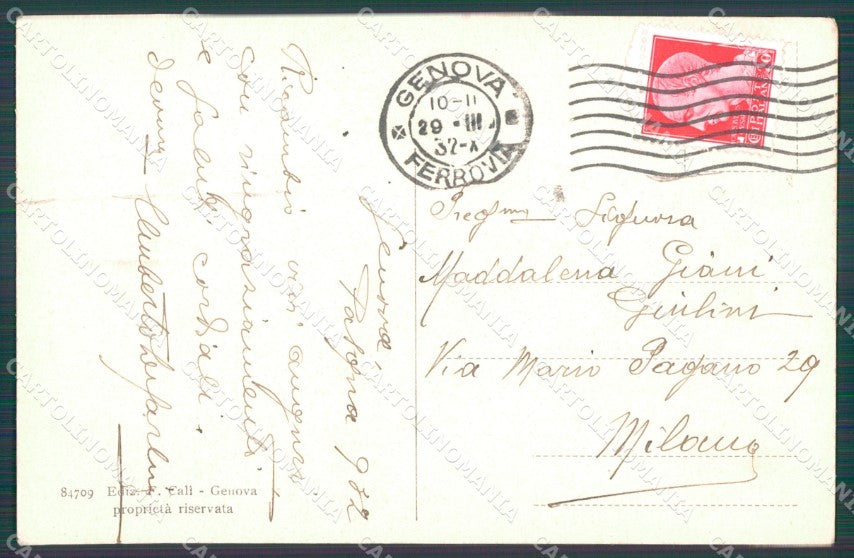 GENOVA
10-11
29 • III
32-X
FERROVIA
Genova
Pasqua 932
Ricambio auguri
con ringraziamenti
e saluti cordiali.
Umberto
Signora
Maddalena Giani
Giulini
Via Mario Pagano 29
Milano
84709 Ediz. F. Calì - Genova
proprietà riservata
CARTOLINOMANIA